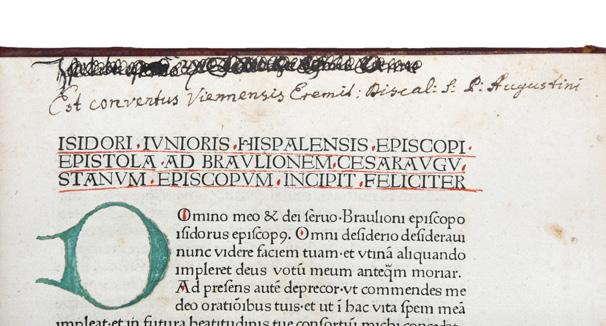 Est conventus Viennensis Eremit: Discal: S: P: Augustini
ISIDORI·IVNIORIS·HISPALENSIS·EPISCOPI·
EPISTOLA·AD BRAVLIONEM·CESARAVGV·
STANVM·EPISCOPVM·INCIPIT·FELICITER
DOmino meo & dei seruo·Braulioni episcopo
isidorus episcopꝯ. Omni desiderio desideraui
nunc videre faciem tuam·et vtinā aliquando
impleret deus votū meum anteq̄m moriar.
Ad presens autē deprecor·vt commendes me
deo oratiōibus tuis·et ut ī hac vita spem meā
impleat·et in futura beatitudinis tue consortiū michi